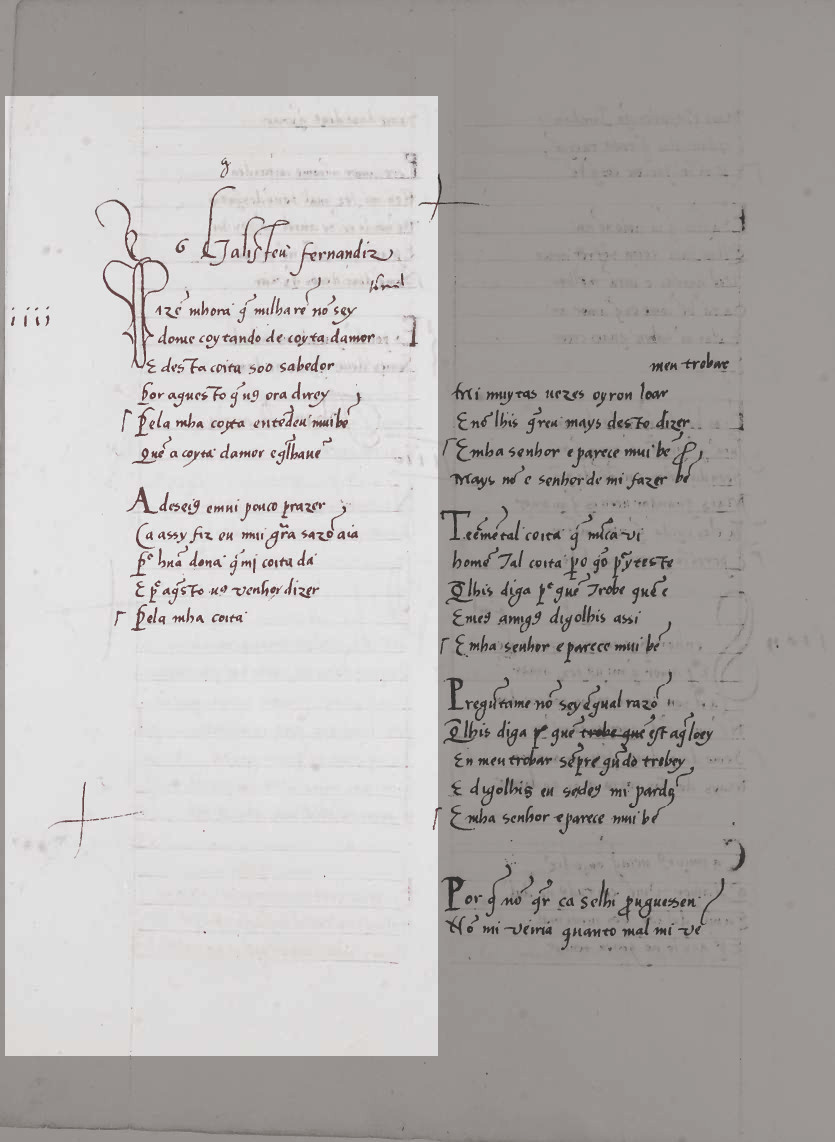 g
6 Galisteu fernandiz
iiii
Dizē mhora q̄ milharē nō sey
dome coytando de coyta damor
E desta coita soo sabedor
Por aquesto q̄ uꝯ ora direy
Pela mha coyta entēdeu mui bē
Que a coyta damor
A deseiꝯ e mui pouco prazer
Ca assy fiz eu mui gr̄a sazō aia
hūa dona q̄ mi coita da
uꝯ venhor dizer
Pela mha coita
meu trobar
muytas uezes oyron loar
E nō lhis q̄reu mays desto dizer
E mha senhor e parece mui bē
Mays nō e senhor de mi fazer bē
T coita q̄ nūca vi
home tal coita
Q̄ lhis diga trobe
E meꝯ amigꝯ digolhis assi
E mha senhor e parece mui bē
Pregūtame nō sey qual razō
Q̄ lhis diga est
En meu trobar sēpre trobey
E digolhis eu mi
E mha senhor e parece mui bē
Por q̄ nō q̄r ca selhi prouguessen
Nō mi veiria quanto mal mi vē